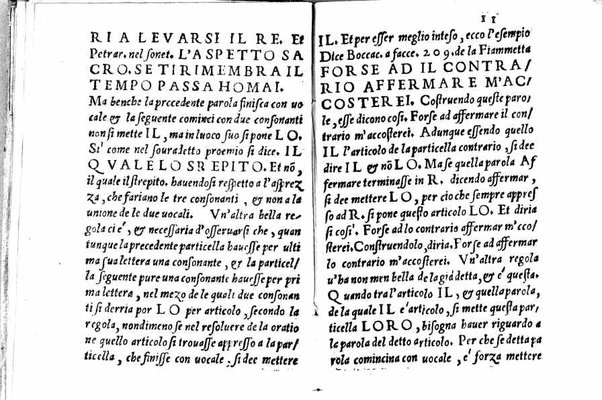 RIA LEVARSI IL RE. Et
Petrar. nel sonet. L'ASPETTO SA
CRO. SE TI RIMEMBRA IL
TEMPO PASSA HOMAI.
Ma benche la precedente parola finisca con uo
cale & la seguente cominci con due consonanti
non si mette IL, ma in luoco suo si pone LO.
Si' come nel souradetto proemio si dice. IL
QVALE LO SREPITO. Et nō,
il quale il strepito. hauendosi respetto a l'asprez
za, che fariano le tre consonanti, & non a la
unione de le due uocali. Vn'altra bella re,
gola ci è, & necessaria d'osseruarsi che, quan
tunque la precedente particella hauesse per ulti
ma sua lettera una consonante, & la particel/
la seguente pure una consonante hauesse per pri
ma lettera, nel mezo de le quali due consonan
ti si derria por LO per articolo, secondo la
regola, nondimeno se nel resoluere de la oratio
ne quello articolo si trouasse appresso a la par/
ticella, che finisse con uocale, si dee mettere
11
IL. Et per esser meglio inteso, ecco l'esempio
Dice Boccac. a facce. 209. de la Fiammetta
FORSE AD IL CONTRA/
RIO AFFERMARE M'AC/
COSTEREI. Costruendo queste paro/
le, esse dicono cosi, Forse ad affermare il con/
trario m'accosterei. Adunque essendo quello
IL l'articolo de la particella contrario, si dee
dire IL & nō LO. Ma se quella parola Af
fermare terminasse in R. dicendo affermar,
si dee mettere LO, per cio che sempre appres
so ad R. si pone questo articolo LO. Et diria
si cosi'. Forse ad lo contrario affermar m'cco/
sterei. Construendolo, diria. Forse ad affermar
lo contrario m'accosterei. Vn'altra regola
u'ha non men bella de la gia detta, & è questa.
Quando tra l'articolo IL, & quella parola,
de la quale IL è articolo, si mette questa par
ticella LORO, bisogna hauer riguardo a
la parola del detto articolo. Per che se detta pa
rola comincina con uocale, è forza mettere